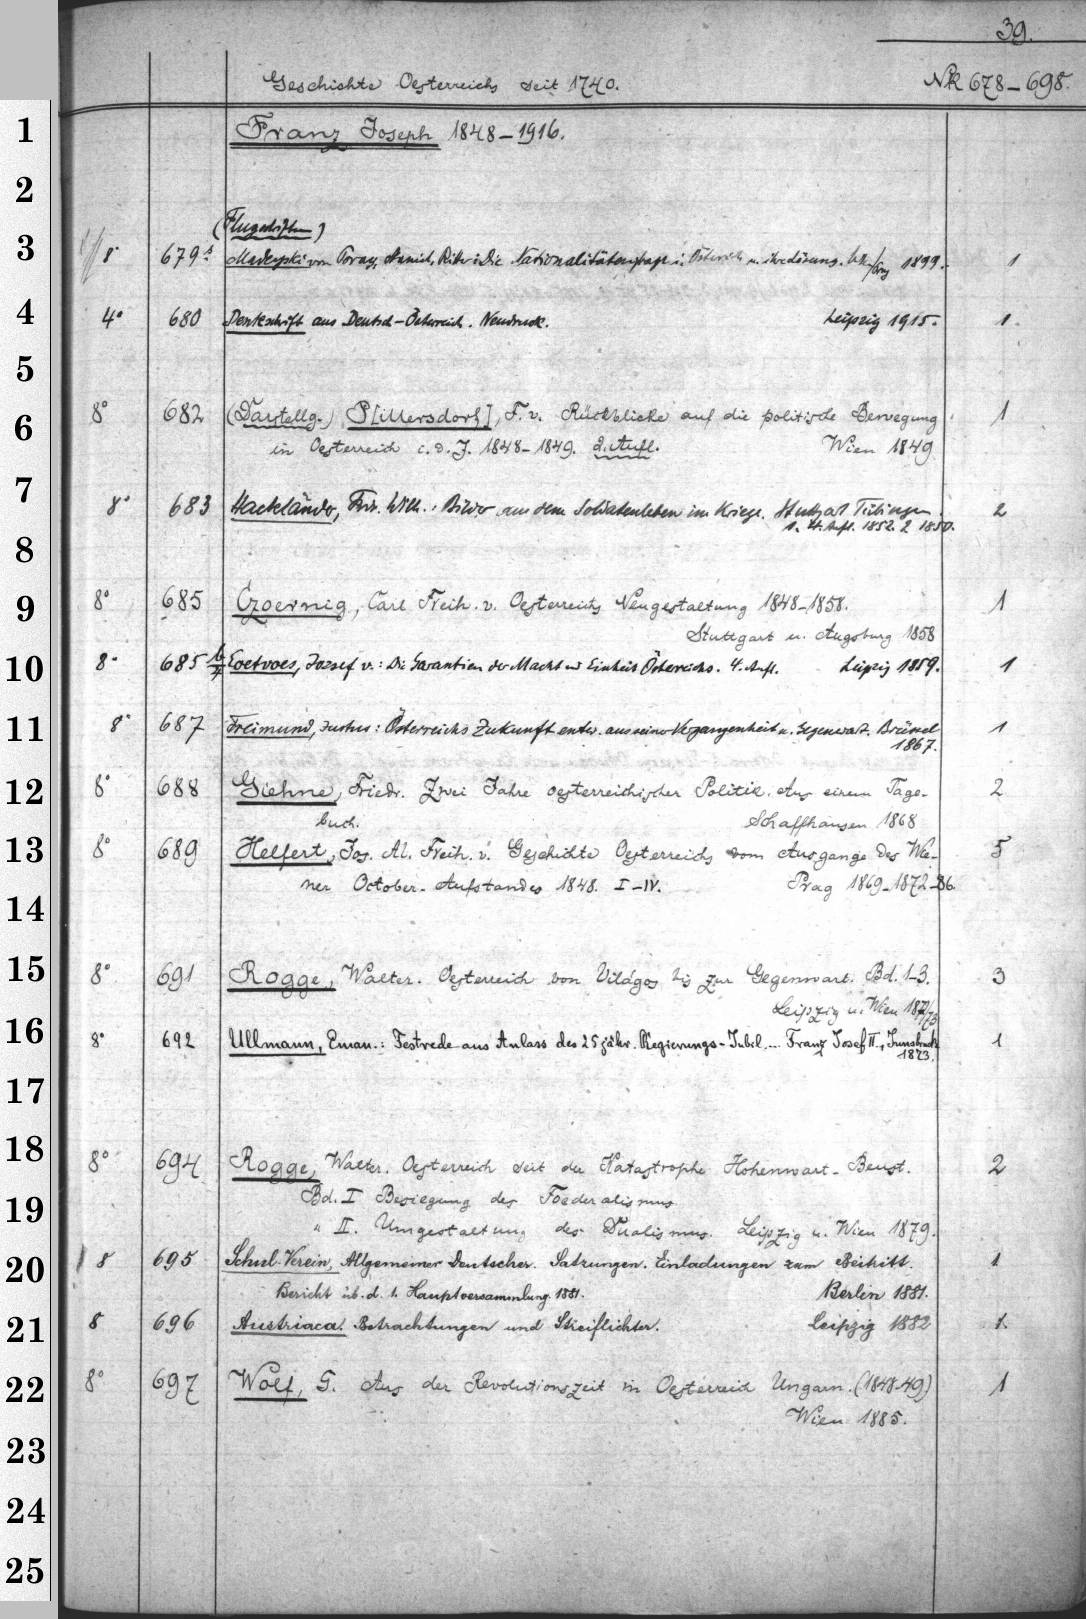 39.
Geschichte Oesterreichs seit 1740. Nr. 678–698.
1 Franz Joseph 1848–1916.
2
(Flugschriften)
3 8° 679 Madeyski von Poray, Ritter: Die Nationalitätenfrage i. Österreich u. ihre Lösung. 1899. 1
4 4° 680 Denkschrift aus Deutsch-Österreich. Neudruck. Leipzig 1915. 1.
5
6 8° 682 (Darstellg.) P[illersdorf], F. v. Rückblicke auf die politische Bewegung 1
in Oesterreich i. d. J. 1848–1849. 2. Aufl. Wien 1849
7 8° 683 Hackländer, Frdr. Wilh.: Bilder aus dem Soldatenleben im Kriege. Stuttgart Tübingen. 2
1. 4. Aufl. 1852. 2 1850.
8
9 8° 685 Czoernig, Carl Freih. v. Oesterreichs Neugestaltung 1848–1858. 1
Stuttgart u. Augsburg 1858
10 8° 685 Eoetvoes, Jozsef v.: Die Garantien der Macht und Einheit Österreichs. 4. Aufl. Leipzig 1859. 1
11 8° 687 Freimund, Justus: Österreichs Zukunft entw. aus seiner Vergangenheit u. Gegenwart. Brüssel 1
1867.
12 8° 688 Giehne, Friedr. Zwei Jahre oesterreichischer Politik. Aus einem Tage- 2
buch. Schaffhausen 1868
13 8° 689 Helfert, Jos. Al. Freih. v. Geschichte Oesterreichs vom Ausgange des Wie- 5
ner October-Aufstandes 1848. I–IV. Prag 1869–1872–86.
14
15 8° 691 Rogge, Walter. Oesterreich von Világos bis zur Gegenwart. Bd. 1–3. 3
Leipzig u. Wien 1872/73
16 8° 692 Ullmann, Eman.: Festrede aus Anlass des 25 jähr. Regierungs-Jubil... Franz Josef II., Innsbruck 1
1873.
17
18 8° 694 Rogge, Walter. Oesterreich seit der Katastrophe Hohenwart-Beust. 2
19 Bd. I Besiegung des Foederalismus
" II. Umgestaltung des Dualismus. Leipzig u. Wien 1879.
20 8 695 Schul-Verein, Allgemeiner Deutscher. Satzungen. Einladungen zum Beitritt. 1
Bericht üb. d. 1. Hauptversammlung 1881. Berlin 1881.
21 8 696 Austriaca. Betrachtungen und Streiflichter. Leipzig 1882 1.
22 8° 697 Wolf, G. Aus der Revolutionszeit in Oesterreich Ungarn. (1848–49) 1
Wien 1885.
23
24
25